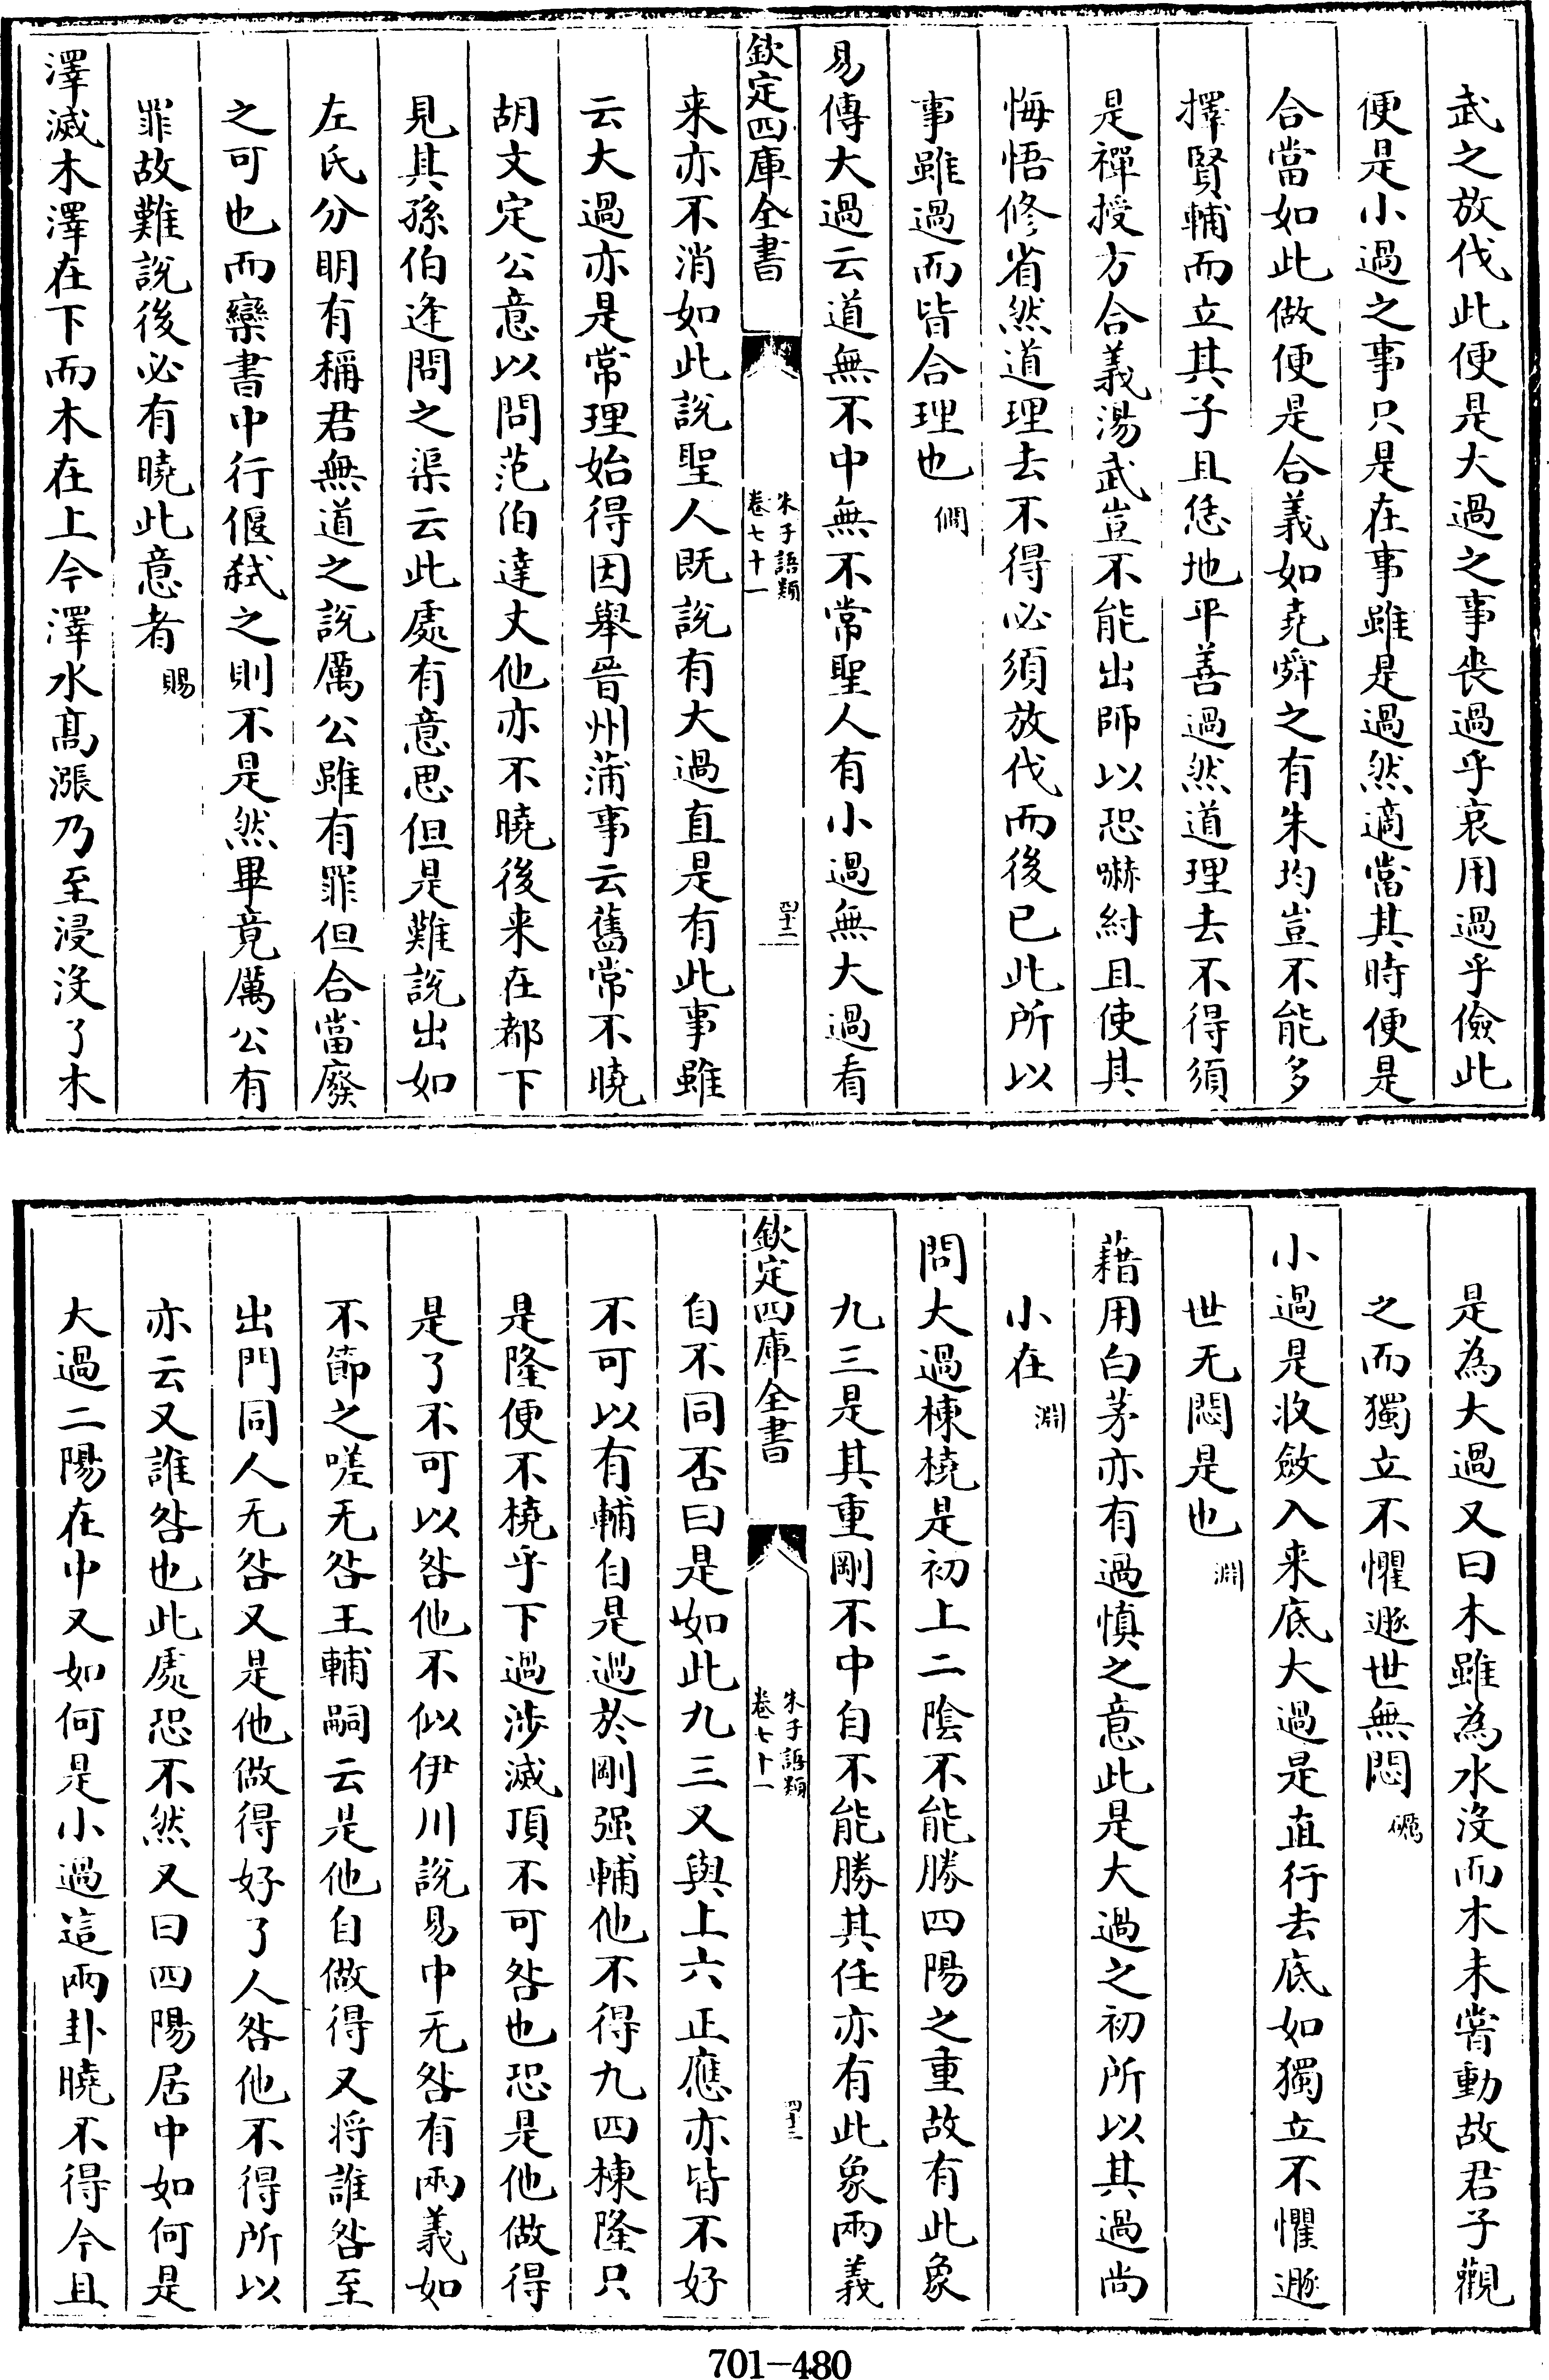 武之放伐此便是大過之事喪過乎哀用過乎儉此
便是小過之事只是在事雖是過然適當其時便是
合當如此做便是合義如堯舜之有朱均豈不能多
擇賢輔而立其子且恁地平善過然道理去不得須
是禪授方合義湯武豈不能出師以恐嚇紂且使其
悔悟修省然道理去不得必須放伐而後已此所以
事雖過而皆合理也 僩
易傳大過云道無不中無不常聖人有小過無大過看
欽定四庫全書 朱子語類 卷七十一 四十二
来亦不消如此說聖人既說有大過直是有此事雖
云大過亦是常理始得因舉晉州蒲事云舊常不曉
胡文定公意以問范伯達丈他亦不曉後来在都下
見其孫伯逢問之渠云此處有意思但是難說出如
左氏分明有稱君無道之說厲公雖有罪但合當廢
之可也而欒書中行偃弑之則不是然畢竟厲公有
罪故難說後必有曉此意者 賜
澤滅木澤在下而木在上今澤水高漲乃至浸没了木
是為大過又曰木雖為水没而木未嘗動故君子觀
之而獨立不懼遯世無悶 礪
小過是收斂入来底大過是直行去底如獨立不懼遯
世无悶是也 淵
藉用白茅亦有過慎之意此是大過之初所以其過尚
小在 淵
問大過棟橈是初上二陰不能勝四陽之重故有此象
九三是其重剛不中自不能勝其任亦有此象兩義
欽定四庫全書 朱子語類 卷七十一 四十三
自不同否曰是如此九三又與上六正應亦皆不好
不可以有輔自是過於剛强輔他不得九四棟隆只
是隆便不橈乎下過涉滅頂不可咎也恐是他做得
是了不可以咎他不似伊川說易中无咎有兩義如
不節之嗟无咎王輔嗣云是他自做得又将誰咎至
出門同人无咎又是他做得好了人咎他不得所以
亦云又誰咎也此處恐不然又曰四陽居中如何是
大過二陽在中又如何是小過這兩卦曉不得今且
701-480